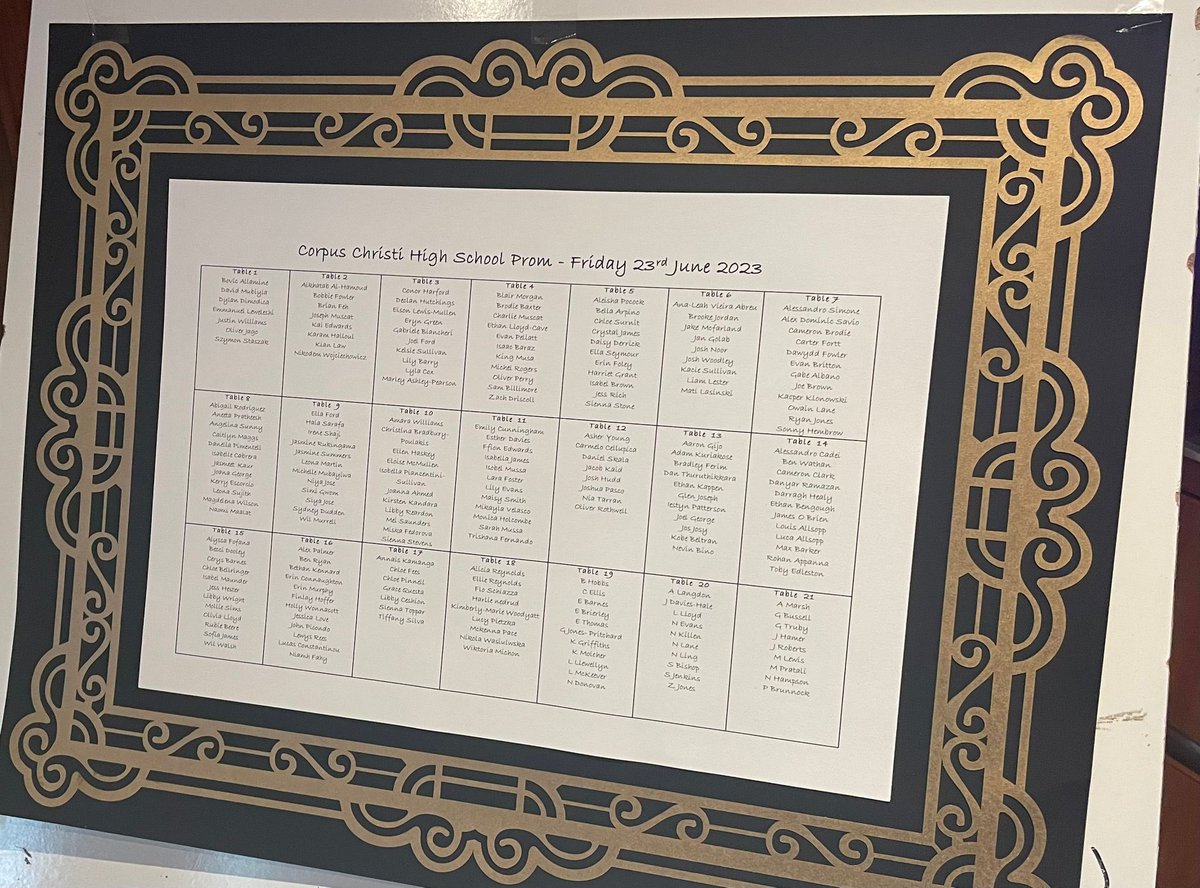 Corpus Christi High School Prom - Friday 23rd June 2023
Table 1
Bovic Allamine
David Mubiyla
Dylan Dimodica
Emmanuel Leweleshi
Justin Williams
Oliver Jago
Szymon Staszak
Table 2
Alkhatab Al-Hamoud
Bobbie Fowler
Brian Feh
Joseph Muscat
Kai Edwards
Karam Halloul
Kian Law
Nikodem Wojciechowicz
Table 3
Conor Harford
Declan Hutchings
Elson Lewis-Mullen
Eryn Green
Gabriele Biancheri
Joel Ford
Kelsie Sullivan
Lily Barry
Lyla Cox
Marley Ashley-Pearson
Table 4
Blair Morgan
Brodie Baxter
Charlie Muscat
Ethan Lloyd-Cave
Evan Pellatt
Isaac Baraz
King Musa
Michel Rogers
Oliver Perry
Sam Billimore
Zach Driscoll
Table 5
Aleisha Pocock
Bella Arpino
Chloe Surnit
Crystal James
Daisy Derrick
Ella Seymour
Erin Foley
Harriet Grant
Isabel Brown
Jess Rich
Sienna Stone
Table 6
Ana-Leah Vieira Abreu
Brooke Jordan
Jake Mofarland
Jan Golab
Josh Noor
Josh Woodley
Kacie Sullivan
Liam Lester
Mati Lasinski
Table 7
Alessandro Simone
Alex Dominic Savio
Cameron Brodie
Carter Fortt
Dawydd Fowler
Evan Britton
Gabe Albano
Joe Brown
Kacper Klonowski
Owain Lane
Ryan Jones
Sonny Hembrow
Table 8
Abigail Rodriguez
Aneeta Pratheesh
Angelina Sunny
Caitlyn Maggs
Danella Pimentel
Isabelle Cabrera
Jasmeet Kaur
Joana George
Kerry Escorcio
Leona Sujith
Magdelena Wilson
Naomi Maalat
Table 9
Ella Ford
Hala Sarafa
Irene Shaji
Jasmine Rukingama
Jasmine Summers
Leona Martin
Michelle Mubayiwa
Niya Jose
Simi Gwom
Siya Jose
Sydney Dudden
Wil Murrell
Table 10
Amara Williams
Christina Bradbury-
Poulakis
Ellen Haskey
Eloise McMullen
Isobella Piancentini-
Sullivan
Joanna Ahmed
Kirsten Kandara
Libby Reardon
Mel Saunders
Miska Fedorova
Sienna Stevens
Table 11
Emily Cunningham
Esther Davies
Ffion Edwards
Isabella James
Isobel Mussa
Lara Foster
Lily Evans
Maisy Smith
Mikayla Velasco
Monica Holcombe
Sarah Mussa
Trishana Fernando
Table 12
Asher Young
Carmelo Cellupica
Daniel Skala
Jacob Kaid
Josh Hudd
Joshua Pasco
Nia Tarran
Oliver Rothwell
Table 13
Aaron Gijo
Adam Kuriakose
Bradley Ferim
Dan Thuruthikkara
Ethan Kappen
Glen Joseph
Iestyn Patterson
Joel George
Jos Josy
Kobe Beltran
Nevin Bino
Table 14
Alessandro Cadei
Ben Wathan
Cameron Clark
Danyar Ramazan
Darragh Healy
Ethan Bengough
James O Brien
Louis Allsopp
Luca Allsopp
Max Barker
Rohan Appanna
Toby Edleston
Table 15
Alysca Fofana
Becci Dooley
Cerys Barnes
Chloe Bellringer
Isabel Maunder
Jess Hozer
Libby Wright
Mollie Sims
Olivia Lloyd
Rubie Beere
Sofia James
Wil Walsh
Table 16
Alex Palmer
Ben Ryan
Bethan Kennard
Erin Connaughton
Erin Murphy
Finlay Hoffer
Holly Wonnacott
Jessica Love
John Picondo
Lewys Rees
Lucas Constantinou
Niamh Fahy
Table 17
Annais Kamanga
Chloe Fees
Chloe Pinnell
Grace Questa
Libby Ceshion
Sienna Toppar
Tiffany Silva
Table 18
Alicia Reynolds
Ellie Reynolds
Flo Schiazza
Harlie nedrud
Kimberly-Marie Woodyatt
Lucy Pietzka
Mckenna Pace
Nikola Wasluiwska
Wiktoria Michon
Table 19
B Hobbs
C Ellis
E Barnes
E Brierley
E Thomas
G Jones- Pritchard
K Griffiths
K Molcher
L Llewellyn
L McKeever
N Donovan
Table 20
A Langdon
J Davies-Hale
L Lloyd
N Evans
N Killen
N Lane
N Ling
S Bishop
S Jenkins
Z Jones
Table 21
A Marsh
G Bussell
G Truby
J Hamer
J Roberts
M Lewis
M Pratali
N Hampson
P Brunnock